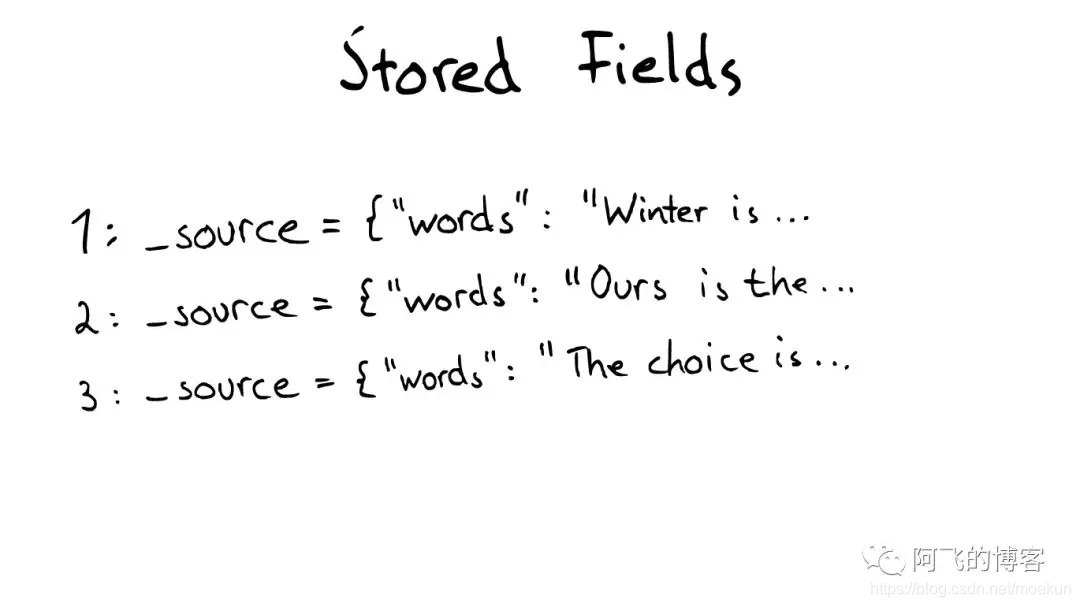 Stored Fields
1: _source = {"words": "Winter is...
2: _source = {"words": "Ours is the...
3: _source = {"words": "The choice is...
阿飞的博客
https://blog.csdn.net/moakun